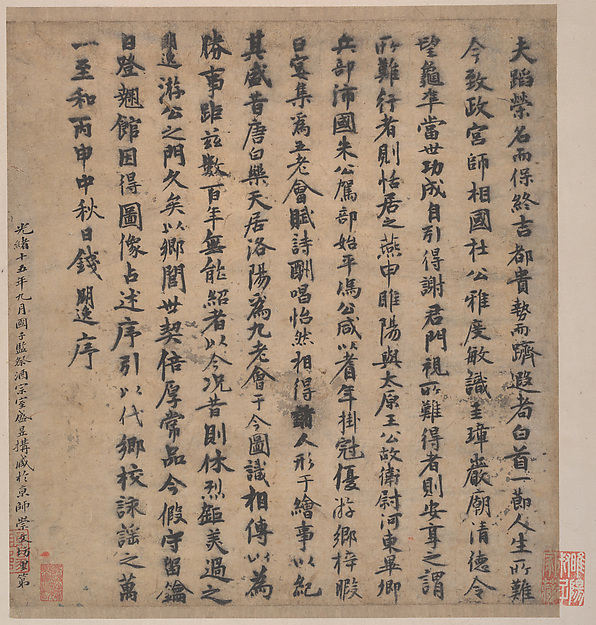 夫蹈榮名而保終吉都貴勢而躋遐耉白首一節人生所難
今致政宮師相國杜公雅度敏識圭璋巖廟清德令
望龜準當世功成自引得謝君門視所難得者則安享之謂
所難行者則恬居之燕申睢陽與太原王公故衛尉河東畢卿
兵部沛國朱公駕部始平馮公咸以耆年掛冠優游鄉梓暇
日宴集爲五老會賦詩酬唱怡然相得諸人形于繪事以紀
其盛昔唐白樂天居洛陽爲九老會于今圖識相傳以爲
勝事距茲數百年無能紹者以今況昔則休烈鉅美過之
明逸游公之門久矣以鄉閭世契倍厚常品今假守留鑰
日登翹館因得圖像占述序引以代鄉校詠謡之萬
一至和丙申中秋日錢明逸序
光緒十五年九月國子監祭酒宗室盛昱搆藏於京師崇文第